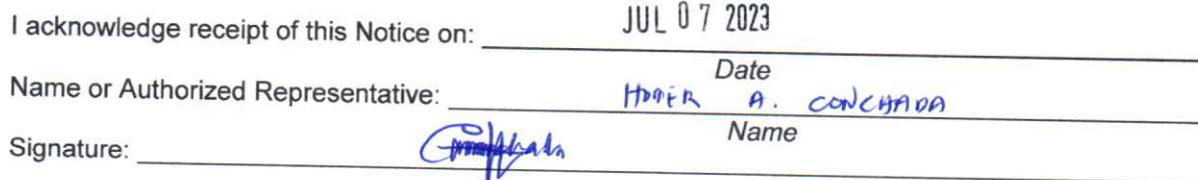 I acknowledge receipt of this Notice on: JUL 07 2023
Date
Name or Authorized Representative: HOMER A. CONCHADA
Name
Signature: